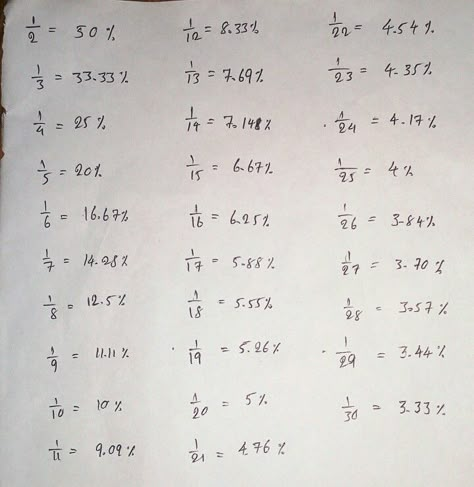 1/2 = 50 %
1/3 = 33.33 %
1/4 = 25 %
1/5 = 20%
1/6 = 16.67%
1/7 = 14.28 %
1/8 = 12.5 %
1/9 = 11.11 %
1/10 = 10 %
1/11 = 9.09 %
1/12 = 8.33 %
1/13 = 7.69 %
1/14 = 7.148 %
1/15 = 6.67 %
1/16 = 6.25 %
1/17 = 5.88 %
1/18 = 5.55%
1/19 = 5.26 %
1/20 = 5 %
1/21 = 4.76 %
1/22 = 4.54 %
1/23 = 4.35 %
1/24 = 4.17 %
1/25 = 4 %
1/26 = 3.84 %
1/27 = 3.70 %
1/28 = 3.57 %
1/29 = 3.44 %
1/30 = 3.33 %